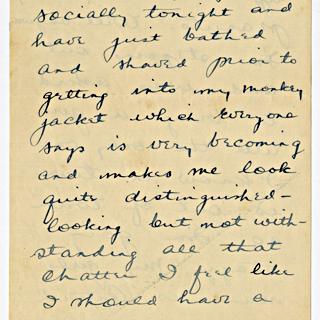 socially tonight and
have just bathed
and shaved prior to
getting into my monkey
jacket which everyone
says is very becoming
and makes me look
quite distinguished-
looking but not with-
standing all that
chatter I feel like
I should have a